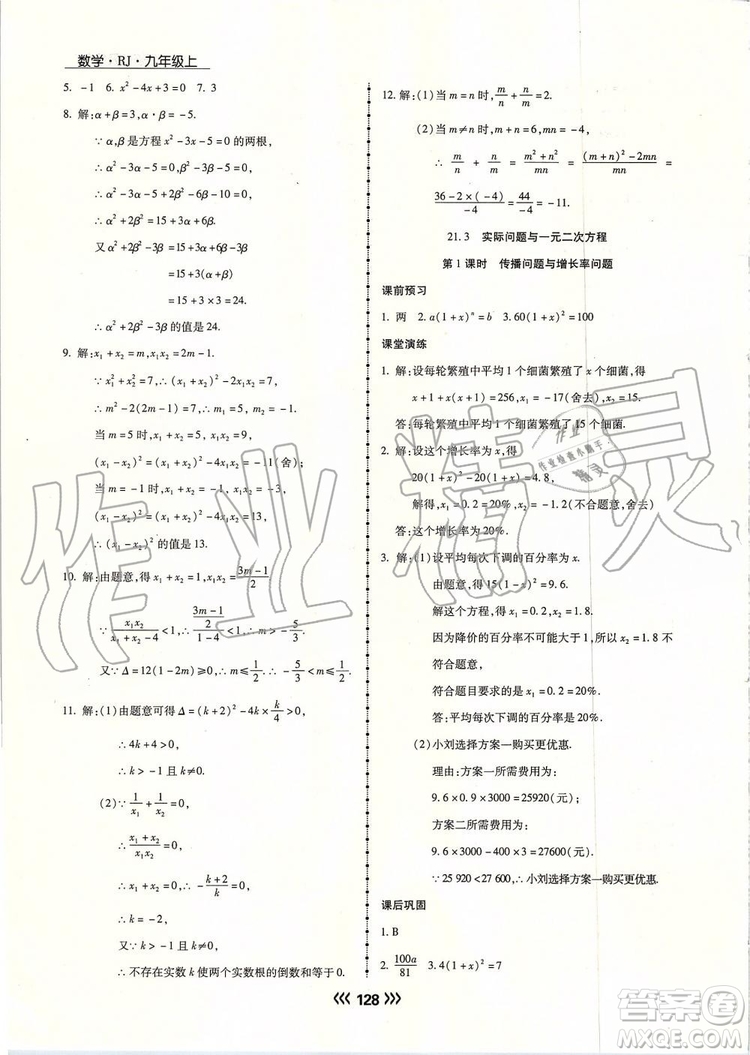 数学·RJ·九年级上
5. -1  6. x²-4x+3=0  7. 3
8. 解:α+β=3,αβ=-5.
∵α,β是方程 x²-3x-5=0 的两根,
∴α²-3α-5=0,β²-3β-5=0.
∴α²-3α-5+2β²-6β-10=0.
∴α²+2β²=15+3α+6β.
又α²+2β²-3β=15+3α+3β
=15+3(α+β)
=15+3×3=24.
∴α²+2β²-3β的值是24.
9. 解:x₁+x₂=m,x₁x₂=2m-1.
∵x₁²+x₂²=7,∴(x₁+x₂)²-2x₁x₂=7,
∴m²-2(2m-1)=7,∴m=5或m=-1.
当 m=5 时,x₁x₂=9,x₁+x₂=5,
(x₁-x₂)²=(x₁+x₂)²-4x₁x₂=-11(舍);
当 m=-1 时,x₁x₂=-3,x₁+x₂=-1,
(x₁-x₂)²=(x₁+x₂)²-4x₁x₂=13.
∴(x₁-x₂)²的值是13.
10. 解:由题意,得 x₁+x₂=1,x₁x₂=(3m-1)/2
∵x₁x₂/(x₁+x₂-4)<1,∴((3m-1)/2)/(1-4)<1,∴m>-5/3.
又∵Δ=12(1-2m)≥0,∴m≤1/2.∴-5/3<m≤1/2.
11. 解:(1)由题意可得 Δ=(k+2)²-4k×k/4>0,
∴4k+4>0,
∴k>-1 且 k≠0.
(2)∵1/x₁+1/x₂=0,
∴(x₁+x₂)/(x₁x₂)=0,
∴x₁+x₂=0,
∴-(k+2)/k=0,
∴k=-2,
又∵k>-1 且 k≠0,
∴不存在实数 k 使两个实数根的倒数和等于0.
12. 解:(1)当 m=n 时,m/n+n/m=2.
(2)当 m≠n 时,m+n=6,mn=-4,
∴m/n+n/m=m²/mn+n²/mn=((m+n)²-2mn)/mn=
(36-2×(-4))/-4=44/-4=-11.
21.3 实际问题与一元二次方程
第1课时 传播问题与增长率问题
课前预习
1. 两  2. a(1+x)ⁿ=b  3. 60(1+x)²=100
课堂演练
1. 解:设每轮繁殖中平均1个细菌繁殖了 x 个细菌,得
x+1+x(x+1)=256,x₁=-17(舍去),x₂=15,
答:每轮繁殖中平均1个细菌繁殖了15个细菌.
2. 解:设这个增长率为 x,得
20(1+x)²-20(1+x)=4.8,
解得,x₁=0.2=20%,x₂=-1.2(不合题意,舍去)
答:这个增长率为20%.
3. 解:(1)设平均每次下调的百分率为 x.
由题意,得15(1-x)²=9.6.
解这个方程,得 x₁=0.2,x₂=1.8.
因为降价的百分率不可能大于1,所以 x₂=1.8 不
符合题意,
符合题目要求的是 x₁=0.2=20%.
答:平均每次下调的百分率是20%.
(2)小刘选择方案一购买更优惠.
理由:方案一所需费用为:
9.6×0.9×3000=25920(元);
方案二所需费用为:
9.6×3000-400×3=27600(元);
∵25 920<27 600,∴小刘选择方案一购买更优惠.
课后巩固
1. B
2. 100a/81  3. 4(1+x)²=7
128
作业精灵
作业精灵
答案圈
MXQE.COM